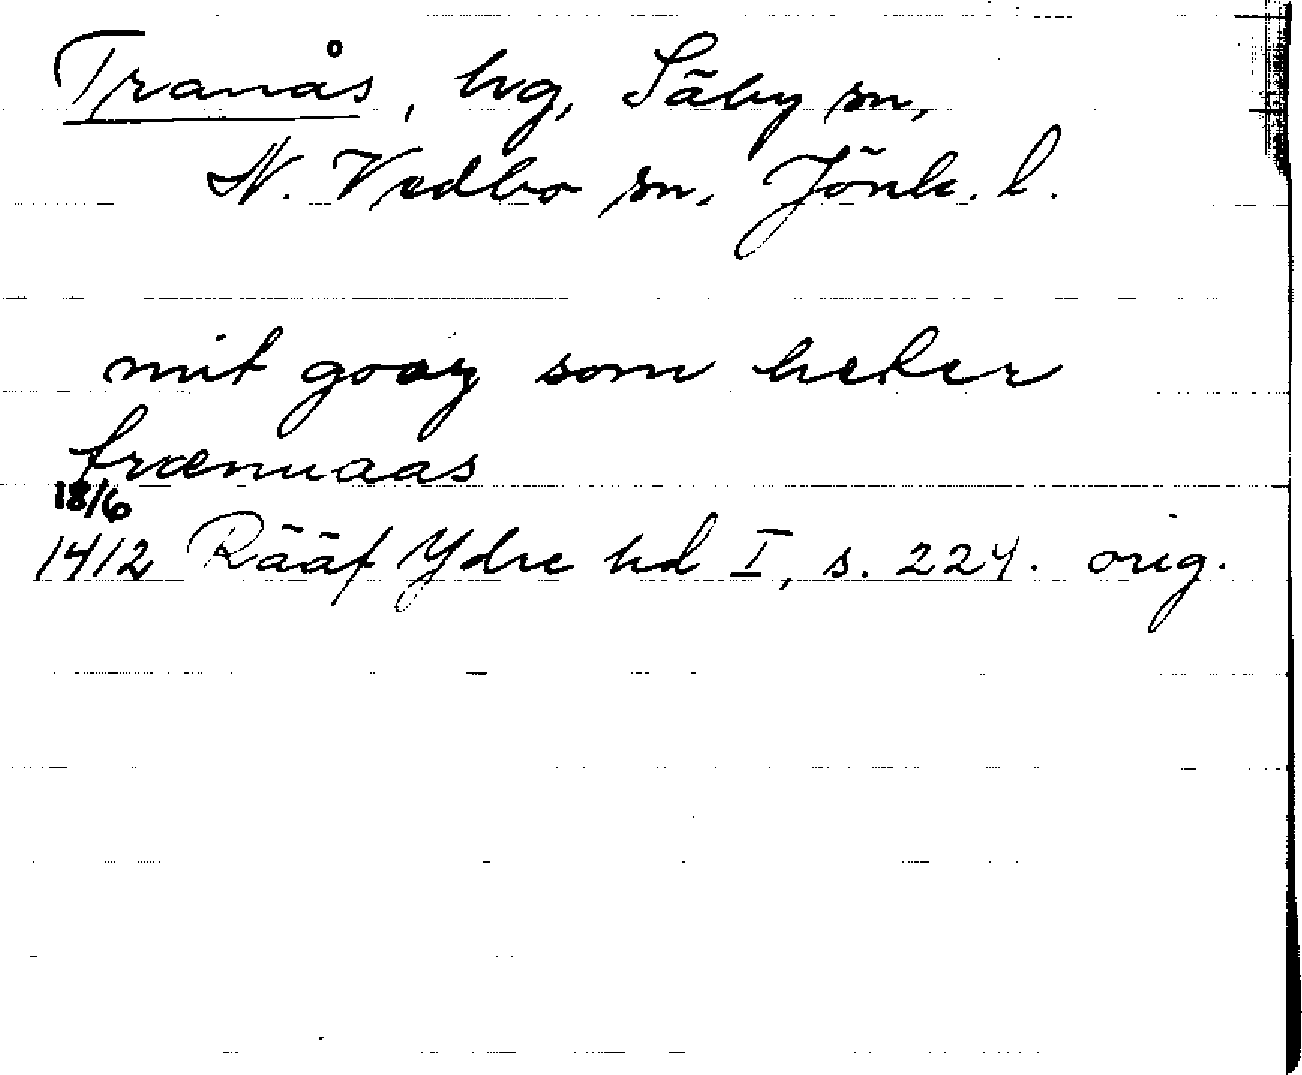 Tranås, hg, Säby sn,
N. Vedbo sn, Jönk. l.
mit gooz som heter
trænuaas
18/6
1412 Rääf Ydre hd I, s. 224. orig.